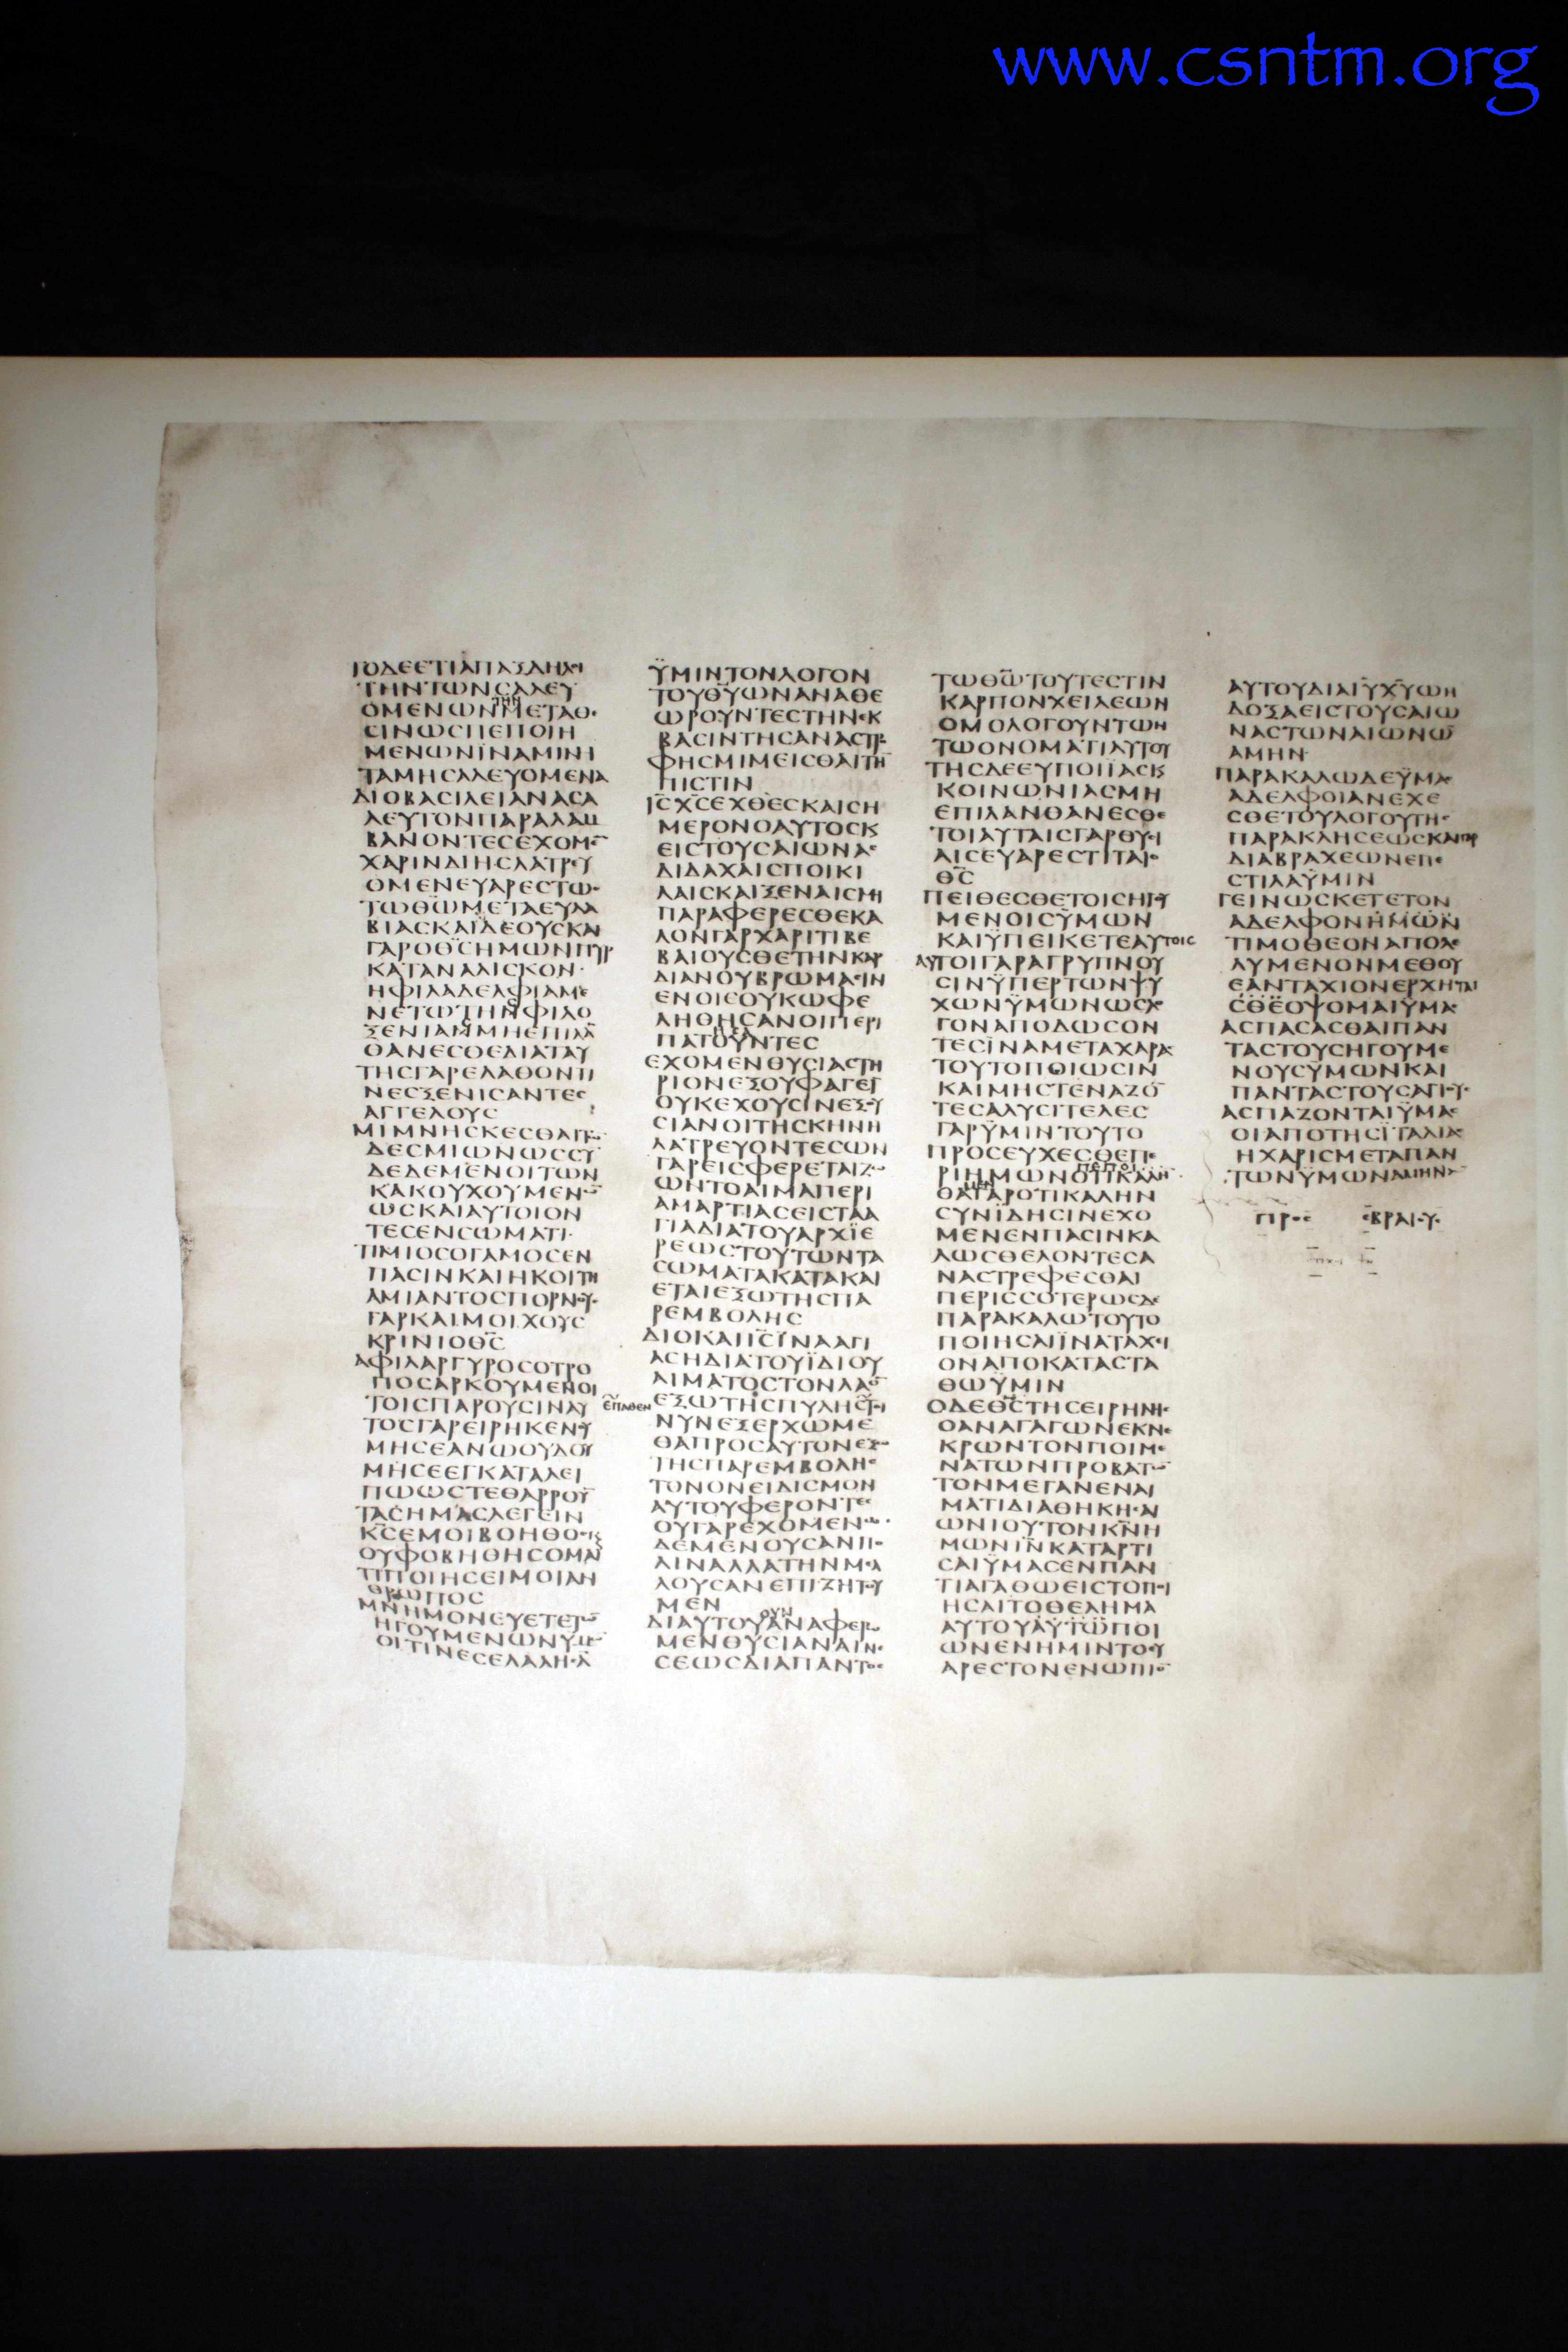 www.csntm.org
ΤΟΔΕΕΤΙΑΠΑΞΔΗΛΟΙ
ΤΗΝΤΩΝCΑΛΕΥ
ΤΗΝ
ΟΜΕΝΩΝΜΕΤΑΘΕ
CΙΝΩCΠΕΠΟΙΗ
ΜΕΝΩΝΪΝΑΜΙΝΗ
ΤΑΜΗCΑΛΕΥΟΜΕΝΑ
ΔΙΟΒΑCΙΛΕΙΑΝΑCΑ
ΛΕΥΤΟΝΠΑΡΑΛΑΜ
ΒΑΝΟΝΤΕCΕΧΟΜΕ̅
ΧΑΡΙΝΔΙΗCΛΑΤΡΕΥ
ΟΜΕΝΕΥΑΡΕCΤΩC
ΤΩΘΩ̅ΜΕΤΑΕΥΛΑ
ΒΙΑCΚΑΙΔΕΟΥCΚΑΙ
ΓΑΡΟΘC̅ΗΜΩΝΠΥΡ
ΚΑΤΑΝΑΛΙCΚΟΝ
ΗΦΙΛΑΔΕΛΦΙΑΜΕ
ΝΕΤΩΤΗΝΦΙΛΟ
ΞΕΝΙΑΜΜΗΕΠΙΛΑ̅
ΘΑΝΕCΘΕΔΙΑΤΑΥ
ΤΗCΓΑΡΕΛΑΘΟΝΤΙ
ΝΕCΞΕΝΙCΑΝΤΕC
ΑΓΓΕΛΟΥC
ΜΙΜΝΗCΚΕCΘΑΙΤΩ̅
ΔΕCΜΙΩΝΩCCΥ̅
ΔΕΔΕΜΕΝΟΙΤΩΝ
ΚΑΚΟΥΧΟΥΜΕΝΩ̅
ΩCΚΑΙΑΥΤΟΙΟΝ
ΤΕCΕΝCΩΜΑΤΙ
ΤΙΜΙΟCΟΓΑΜΟCΕΝ
ΠΑCΙΝΚΑΙΗΚΟΙΤΗ
ΑΜΙΑΝΤΟCΠΟΡΝΟΥC
ΓΑΡΚΑΙΜΟΙΧΟΥC
ΚΡΙΝΙΟΘC̅
ΑΦΙΛΑΡΓΥΡΟCΟΤΡΟ
ΠΟCΑΡΚΟΥΜΕΝΟΙ
ΤΟΙCΠΑΡΟΥCΙΝΑΥ
ΤΟCΓΑΡΕΙΡΗΚΕΝΟΥ
ΜΗCΕΑΝΩΟΥΔΟΥ
ΜΗCΕΕΓΚΑΤΑΛΕΙ
ΠΩΩCΤΕΘΑΡΡΟΥ̅
ΤΑCΗΜΑCΛΕΓΕΙΝ
ΚC̅ΕΜΟΙΒΟΗΘΟCΚ
ΟΥΦΟΒΗΘΗCΟΜΑΙ
ΤΙΠΟΙΗCΕΙΜΟΙΑΝ
ΘΡΩΠΟC
ΜΝΗΜΟΝΕΥΕΤΕΤΩ̅
ΗΓΟΥΜΕΝΩΝΥΜΩ̅
ΟΙΤΙΝΕCΕΛΑΛΗCΑ̅
ΫΜΙΝΤΟΝΛΟΓΟΝ
ΤΟΥΘΥ̅ΩΝΑΝΑΘΕ
ΩΡΟΥΝΤΕCΤΗΝΕΚ
ΒΑCΙΝΤΗCΑΝΑCΤΡΟ
ΦΗCΜΙΜΕΙCΘΑΙΤΗ̅
ΠΙCΤΙΝ
ΙC̅ΧC̅ΕΧΘΕCΚΑΙCΗ
ΜΕΡΟΝΟΑΥΤΟCΚ
ΕΙCΤΟΥCΑΙΩΝΑC
ΔΙΔΑΧΑΙCΠΟΙΚΙ
ΛΑΙCΚΑΙΞΕΝΑΙCΜΗ
ΠΑΡΑΦΕΡΕCΘΕΚΑ
ΛΟΝΓΑΡΧΑΡΙΤΙΒΕ
ΒΑΙΟΥCΘΕΤΗΝΚΑΡ
ΔΙΑΝΟΥΒΡΩΜΑCΙΝ
ΕΝΟΙCΟΥΚΩΦΕ
ΛΗΘΗCΑΝΟΙΠΕΡΙ
ΠΑΤΟΥΝΤΕC
ΕΧΟΜΕΝΘΥCΙΑCΤΗ
ΡΙΟΝΕΞΟΥΦΑΓΕΙ̅
ΟΥΚΕΧΟΥCΙΝΕΞΟΥ
CΙΑΝΟΙΤΗCΚΗΝΗ
ΛΑΤΡΕΥΟΝΤΕCΩΝ
ΓΑΡΕΙCΦΕΡΕΤΑΙΖΩ
ΩΝΤΟΑΙΜΑΠΕΡΙ
ΑΜΑΡΤΙΑCΕΙCΤΑΑ
ΓΙΑΔΙΑΤΟΥΑΡΧΪΕ
ΡΕΩCΤΟΥΤΩΝΤΑ
CΩΜΑΤΑΚΑΤΑΚΑΙ
ΕΤΑΙΕΞΩΤΗCΠΑ
ΡΕΜΒΟΛΗC
ΔΙΟΚΑΙΙC̅ΪΝΑΑΓΙ
ΑCΗΔΙΑΤΟΥΪΔΙΟΥ
ΑΙΜΑΤΟCΤΟΝΛΑΟ̅
ΕΠΑΘΕΝ
ΕΞΩΤΗCΠΥΛΗC
ΝΥΝΕΞΕΡΧΩΜΕ
ΘΑΠΡΟCΑΥΤΟΝΕΞΩ
ΤΗCΠΑΡΕΜΒΟΛΗC
ΤΟΝΟΝΕΙΔΙCΜΟΝ
ΑΥΤΟΥΦΕΡΟΝΤΕC
ΟΥΓΑΡΕΧΟΜΕΝΩ
ΔΕΜΕΝΟΥCΑΝΠΟ
ΛΙΝΑΛΛΑΤΗΝΜΕΛ
ΛΟΥCΑΝΕΠΙΖΗΤΟΥ
ΜΕΝ
ΟΥΝ
ΔΙΑΥΤΟΥΑΝΑΦΕΡΩ
ΜΕΝΘΥCΙΑΝΑΙΝΕ
CΕΩCΔΙΑΠΑΝΤΟC
ΤΩΘΩ̅ΤΟΥΤΕCΤΙΝ
ΚΑΡΠΟΝΧΕΙΛΕΩΝ
ΟΜΟΛΟΓΟΥΝΤΩΝ
ΤΩΟΝΟΜΑΤΙΑΥΤΟΥ
ΤΗCΔΕΕΥΠΟΙΪΑCΚ
ΚΟΙΝΩΝΙΑCΜΗ
ΕΠΙΛΑΝΘΑΝΕCΘΕ
ΤΟΙΑΥΤΑΙCΓΑΡΘΥCΙ
ΑΙCΕΥΑΡΕCΤΙΤΑΙΟ
ΘC̅
ΠΕΙΘΕCΘΕΤΟΙCΗΓΟΥ
ΜΕΝΟΙCΫΜΩΝ
ΚΑΙΫΠΕΙΚΕΤΕΑΥΤΟΙC
ΑΥΤΟΙΓΑΡΑΓΡΥΠΝΟΥ
CΙΝΫΠΕΡΤΩΝΨΥ
ΧΩΝΫΜΩΝΩCΛΟ
ΓΟΝΑΠΟΔΩCΟΝ
ΤΕCΪΝΑΜΕΤΑΧΑΡΑC
ΤΟΥΤΟΠΟΙΩCΙΝ
ΚΑΙΜΗCΤΕΝΑΖΟ̅
ΤΕCΑΛΥCΙΤΕΛΕC
ΓΑΡΫΜΙΝΤΟΥΤΟ
ΠΡΟCΕΥΧΕCΘΕΠΕ
ΡΙΗΜΩΝΟΤΙΚΑΛΗ
ΘΑΓΑΡΟΤΙΚΑΛΗΝ
CΥΝΪΔΗCΙΝΕΧΟ
ΜΕΝΕΝΠΑCΙΝΚΑ
ΛΩCΘΕΛΟΝΤΕCΑ
ΝΑCΤΡΕΦΕCΘΑΙ
ΠΕΡΙCCΟΤΕΡΩCΔΕ
ΠΑΡΑΚΑΛΩΤΟΥΤΟ
ΠΟΙΗCΑΙΪΝΑΤΑΧΕΙ
ΟΝΑΠΟΚΑΤΑCΤΑ
ΘΩΫΜΙΝ
ΟΔΕΘC̅ΤΗCΕΙΡΗΝΗC
ΟΑΝΑΓΑΓΩΝΕΚΝΕ
ΚΡΩΝΤΟΝΠΟΙΜΕ
ΝΑΤΩΝΠΡΟΒΑΤΩ̅
ΤΟΝΜΕΓΑΝΕΝΑΙ
ΜΑΤΙΔΙΑΘΗΚΗCΑΙ
ΩΝΙΟΥΤΟΝΚΝ̅Η
ΜΩΝΙΝ̅ΚΑΤΑΡΤΙ
CΑΙΫΜΑCΕΝΠΑΝ
ΤΙΑΓΑΘΩΕΙCΤΟΠΟΙ
ΗCΑΙΤΟΘΕΛΗΜΑ
ΑΥΤΟΥΑΥΤΩΠΟΙ
ΩΝΕΝΗΜΙΝΤΟΕΥ
ΑΡΕCΤΟΝΕΝΩΠΙΟ̅
ΑΥΤΟΥΔΙΑΙΥ̅ΧΥ̅ΩΗ
ΔΟΞΑΕΙCΤΟΥCΑΙΩ
ΝΑCΤΩΝΑΙΩΝΩ̅
ΑΜΗΝ
ΠΑΡΑΚΑΛΩΔΕΫΜΑC
ΑΔΕΛΦΟΙΑΝΕΧΕ
CΘΕΤΟΥΛΟΓΟΥΤΗC
ΠΑΡΑΚΛΗCΕΩCΚΑΙΓΑΡ
ΔΙΑΒΡΑΧΕΩΝΕΠΕ
CΤΙΛΑΫΜΙΝ
ΓΕΙΝΩCΚΕΤΕΤΟΝ
ΑΔΕΛΦΟΝΗΜΩΝ
ΤΙΜΟΘΕΟΝΑΠΟΛΕ
ΛΥΜΕΝΟΝΜΕΘΟΥ
ΕΑΝΤΑΧΙΟΝΕΡΧΗΤΑΙ
CΘΕΟΨΟΜΑΙΫΜΑC
ΑCΠΑCΑCΘΑΙΠΑΝ
ΤΑCΤΟΥCΗΓΟΥΜΕ
ΝΟΥCΫΜΩΝΚΑΙ
ΠΑΝΤΑCΤΟΥCΑΓΙΟΥC
ΑCΠΑΖΟΝΤΑΙΫΜΑC
ΟΙΑΠΟΤΗCΪΤΑΛΙΑC
ΗΧΑΡΙCΜΕΤΑΠΑΝ
ΤΩΝΫΜΩΝΑΜΗΝ
ΠΡΟC ΕΒΡΑΙΟΥC